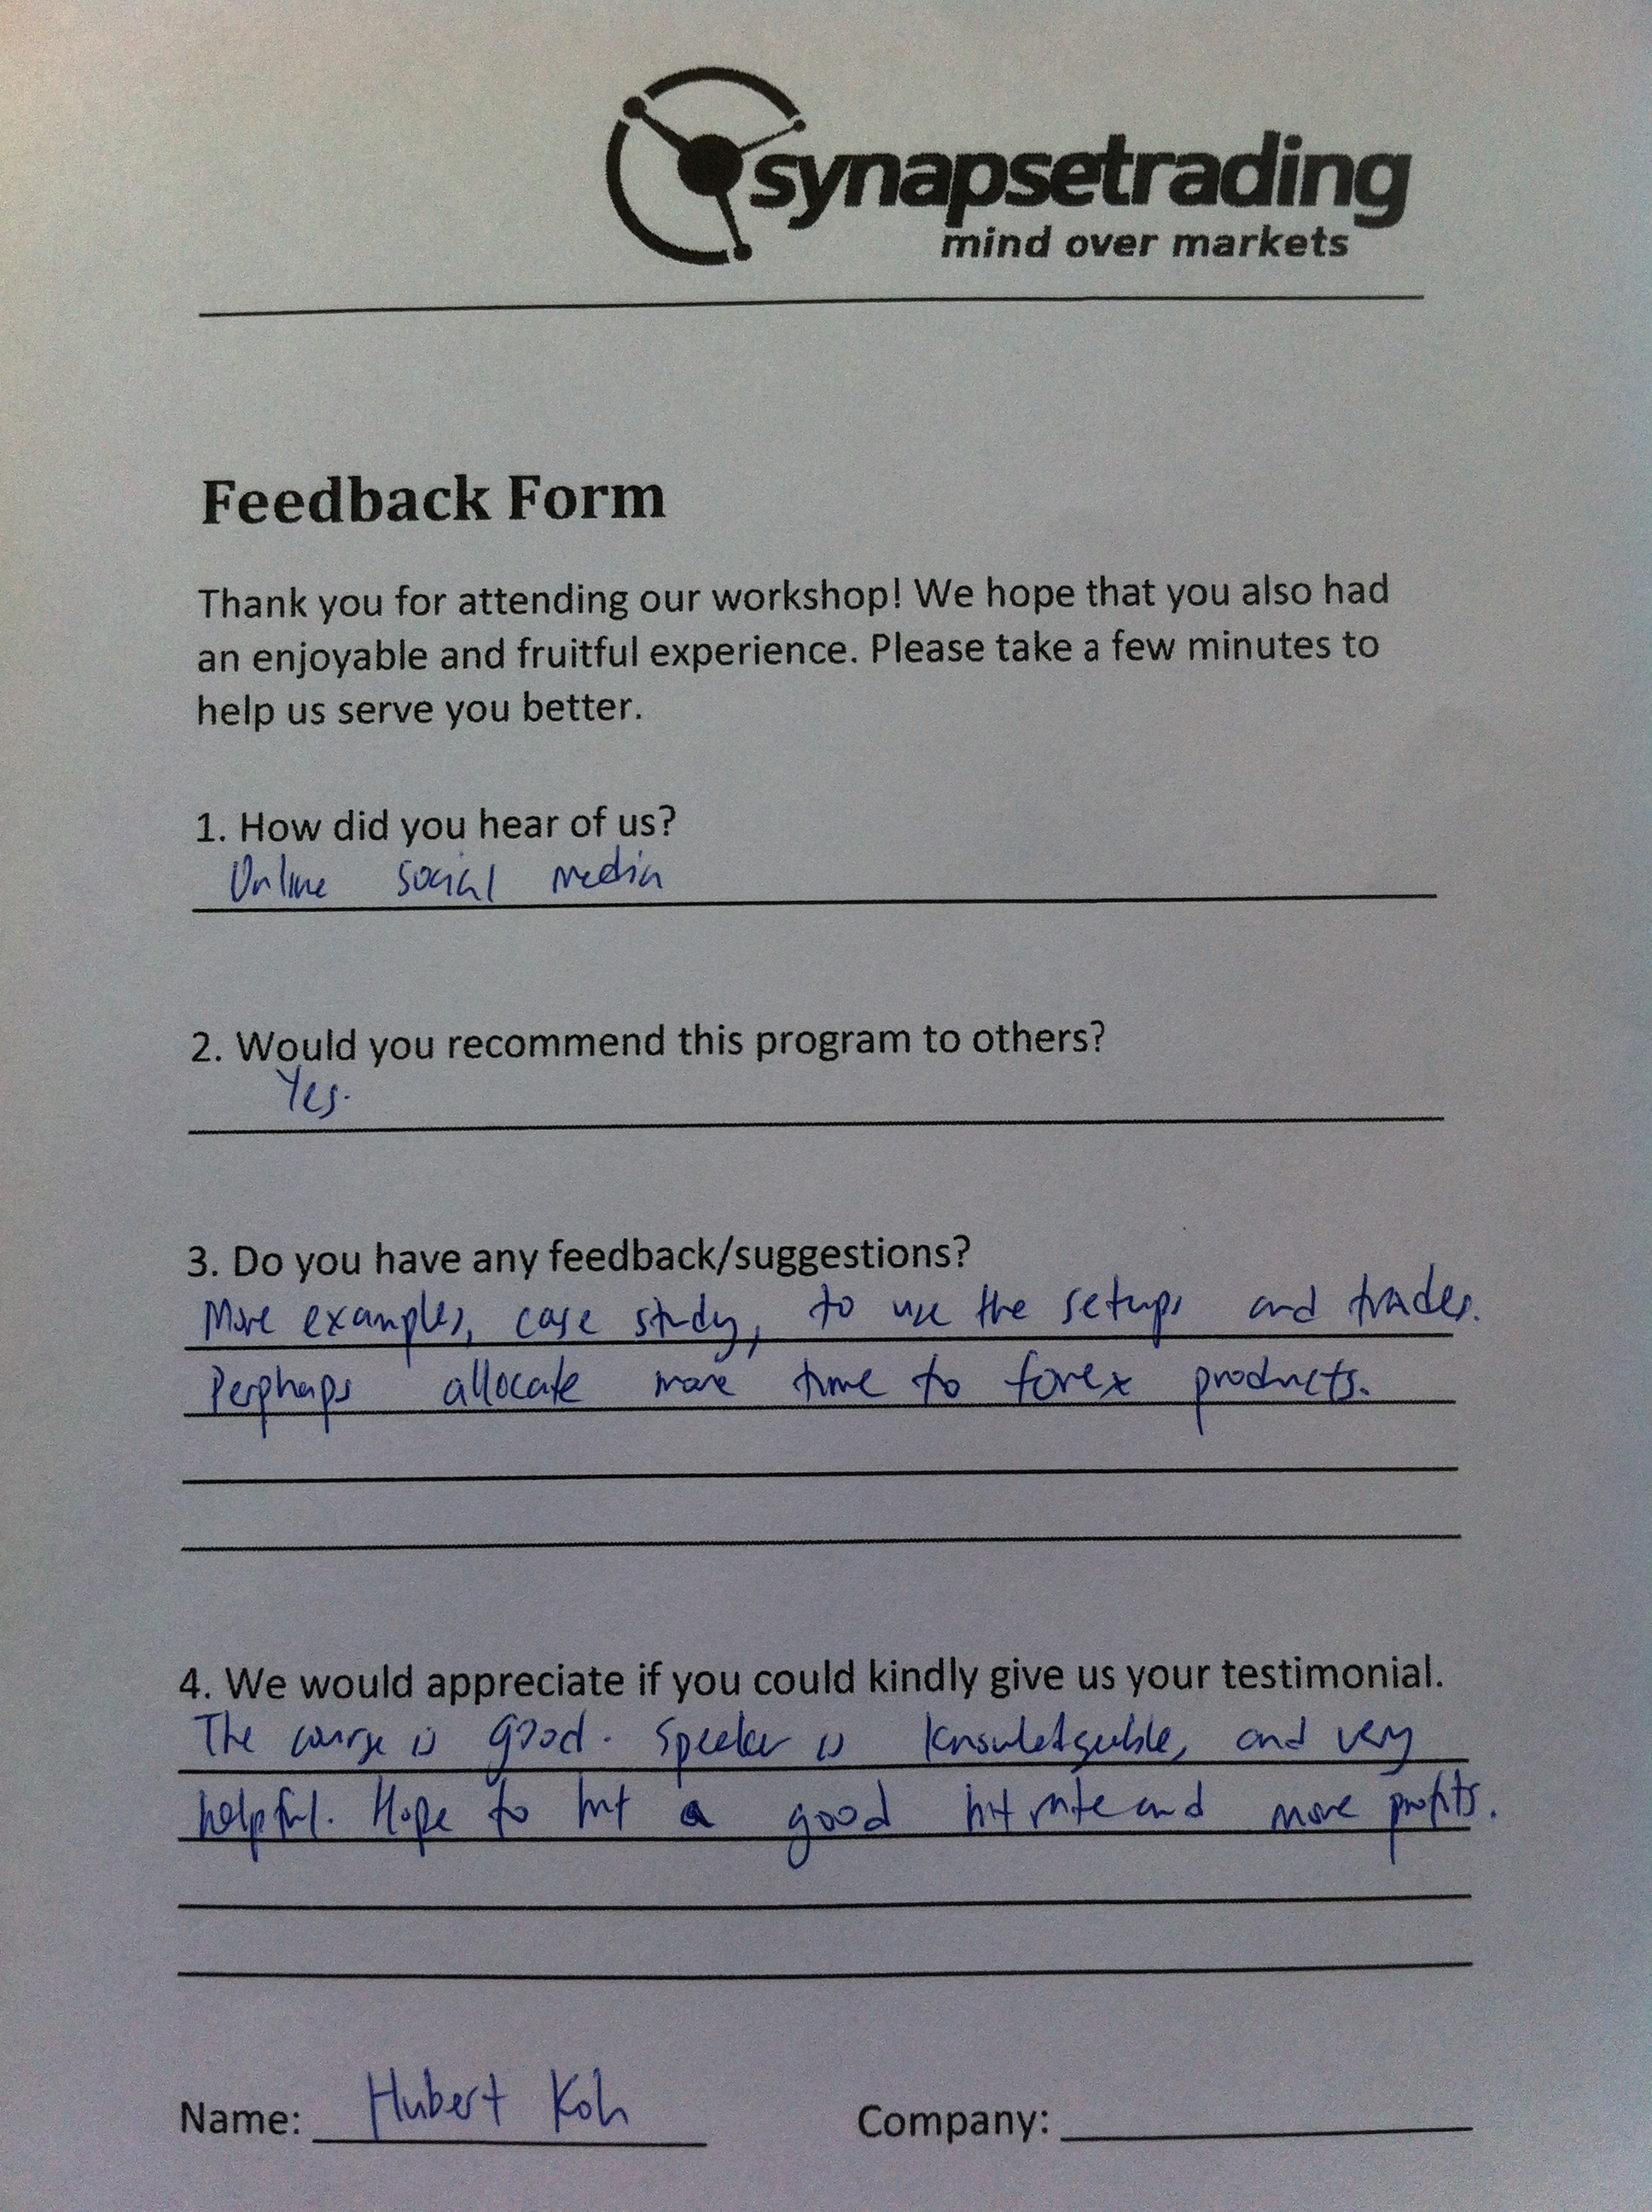 synapsetrading
mind over markets
Feedback Form
Thank you for attending our workshop! We hope that you also had
an enjoyable and fruitful experience. Please take a few minutes to
help us serve you better.
1. How did you hear of us?
Online social media
2. Would you recommend this program to others?
Yes.
3. Do you have any feedback/suggestions?
More examples, case study, to use the setups and trades.
Perphaps allocate more time to forex products.
4. We would appreciate if you could kindly give us your testimonial.
The course is good. Speaker is knowledgeable, and very
helpful. Hope to hit a good hit rate and more profits.
Name: Hubert Koh Company: